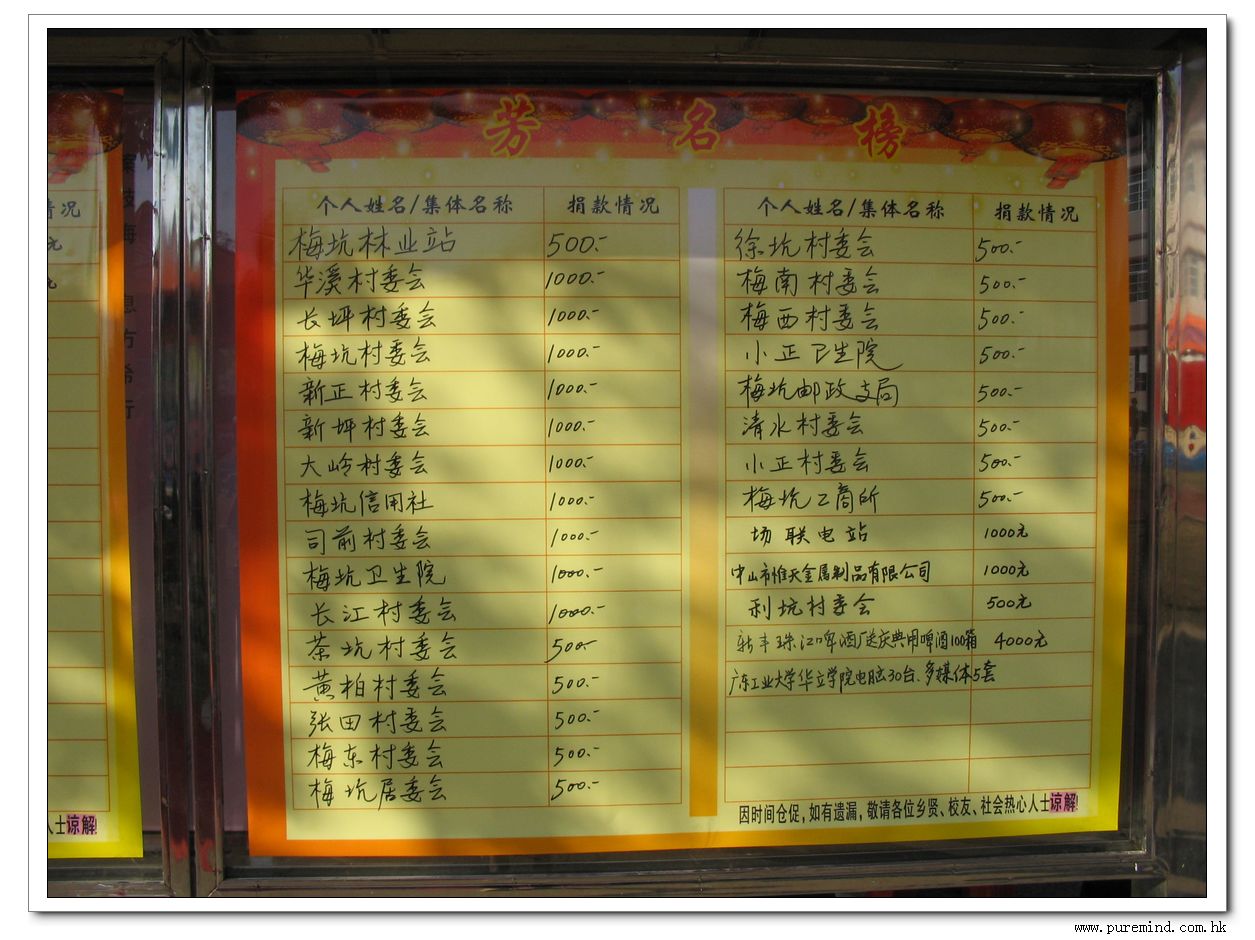 芳名榜
个人姓名/集体名称 捐款情况
梅坑林业站 500.-
华溪村委会 1000.-
长坪村委会 1000.-
梅坑村委会 1000.-
新正村委会 1000.-
新坪村委会 1000.-
大岭村委会 1000.-
梅坑信用社 1000.-
司前村委会 1000.-
梅坑卫生院 1000.-
长江村委会 1000.-
茶坑村委会 500.-
黄柏村委会 500.-
张田村委会 500.-
梅东村委会 500.-
梅坑居委会 500.-
个人姓名/集体名称 捐款情况
徐坑村委会 500.-
梅南村委会 500.-
梅西村委会 500.-
小正卫生院 500.-
梅坑邮政支局 500.-
清水村委会 500.-
小正村委会 500.-
梅坑工商所 500.-
场联电站 1000元
中山市惟天金属制品有限公司 1000元
利坑村委会 500元
新丰珠江啤酒厂送庆典用啤酒100箱 4000元
广东工业大学华立学院电脑30台、多媒体5套
因时间仓促,如有遗漏,敬请各位乡贤、校友、社会热心人士谅解!
情况
元
人士谅解!
www.puremind.com.hk